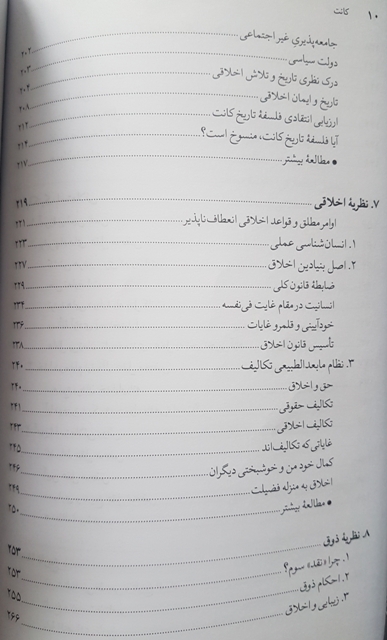 ۱۰ کانت
جامعه‌پذیریِ غیر اجتماعی ۲۰۲
دولت سیاسی ۲۰۳
درک نظری تاریخ و تلاش اخلاقی ۲۰۴
تاریخ و ایمان اخلاقی ۲۰۸
ارزیابی انتقادی فلسفهٔ تاریخ کانت ۲۱۲
آیا فلسفهٔ تاریخ کانت، منسوخ است؟ ۲۱۴
• مطالعهٔ بیشتر ۲۱۷
۷. نظریهٔ اخلاقی ۲۱۹
اوامر مطلق و قواعد اخلاقی انعطاف‌ناپذیر ۲۲۱
۱. انسان‌شناسی عملی ۲۲۳
۲. اصل بنیادین اخلاق ۲۲۷
ضابطهٔ قانون کلی ۲۲۹
انسانیت در مقام غایت فی‌نفسه ۲۳۴
خودآیینی و قلمرو غایات ۲۳۶
تأسیس قانون اخلاق ۲۳۸
۳. نظام مابعدالطبیعی تکالیف ۲۴۰
حق و اخلاق ۲۴۰
تکالیف حقوقی ۲۴۱
تکالیف اخلاقی ۲۴۳
غایاتی که تکالیف‌اند ۲۴۵
کمال خود من و خوشبختی دیگران ۲۴۶
اخلاق به منزله فضیلت ۲۴۹
• مطالعهٔ بیشتر ۲۵۰
۸. نظریهٔ ذوق ۲۵۳
۱. چرا «نقد» سوم؟ ۲۵۳
۲. احکام ذوق ۲۵۵
۳. زیبایی و اخلاق ۲۶۶